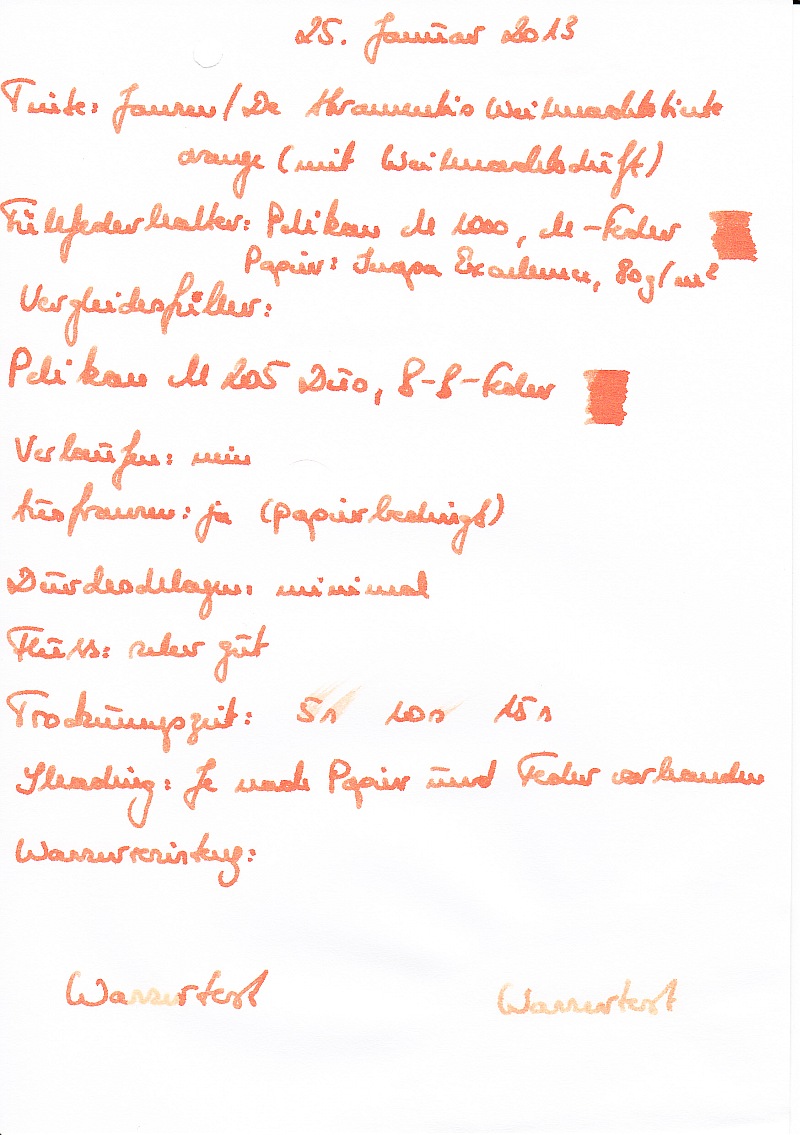 25. Januar 2013
Tinte: Jansen / De Atramentis Weihnachtstinte
orange (mit Weihnachtsduft)
Füllfederhalter: Pelikan M 1000, M-Feder
Papier: Inapa Excellence, 80g/m²
Vergleichsfüller:
Pelikan M 205 Duo, B-B-Feder
Verlaufen: nein
Ausfransen: ja (papierbedingt)
Durchschlagen: minimal
Fluss: sehr gut
Trocknungszeit: 5s 10s 15s
Shading: Je nach Papier und Feder vorhanden
Wasserresistenz:
Wassertest Wassertest